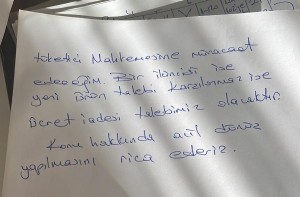 tüketici Mahkemesine müracaat
edeceğim. Bir ilerisi ise
yeni ürün talebi karşılanmaz ise
ücret iadesi talebimiz olacaktır.
Konu hakkında acil dönüş
yapılmasını rica ederiz.